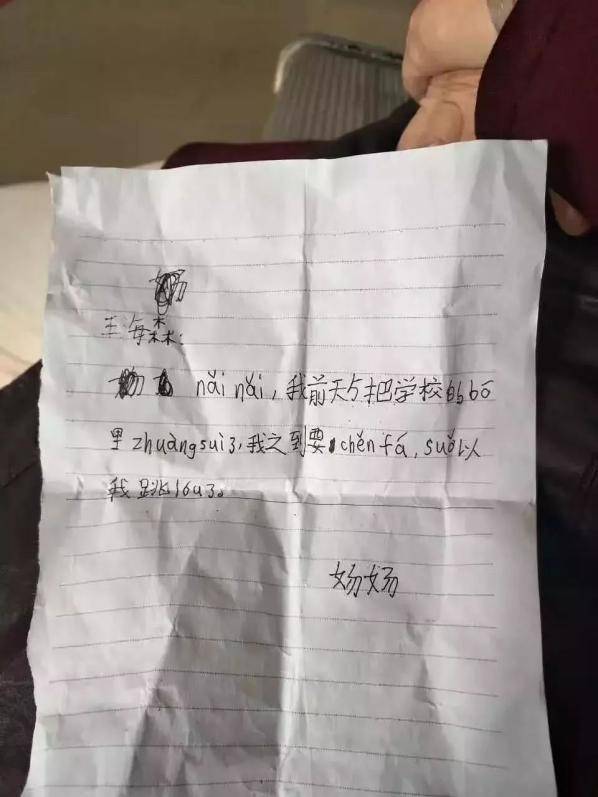 王每森:
nǎi nǎi,我前天把学校的bō
里zhuàng suì了,我之到要chěn fá,suǒ以
我跳lóu了。